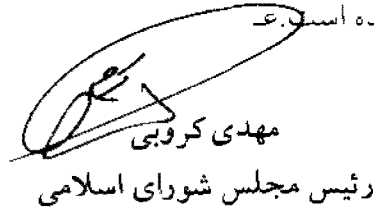 ده است.ع
مهدی کروبی
رئیس مجلس شورای اسلامی